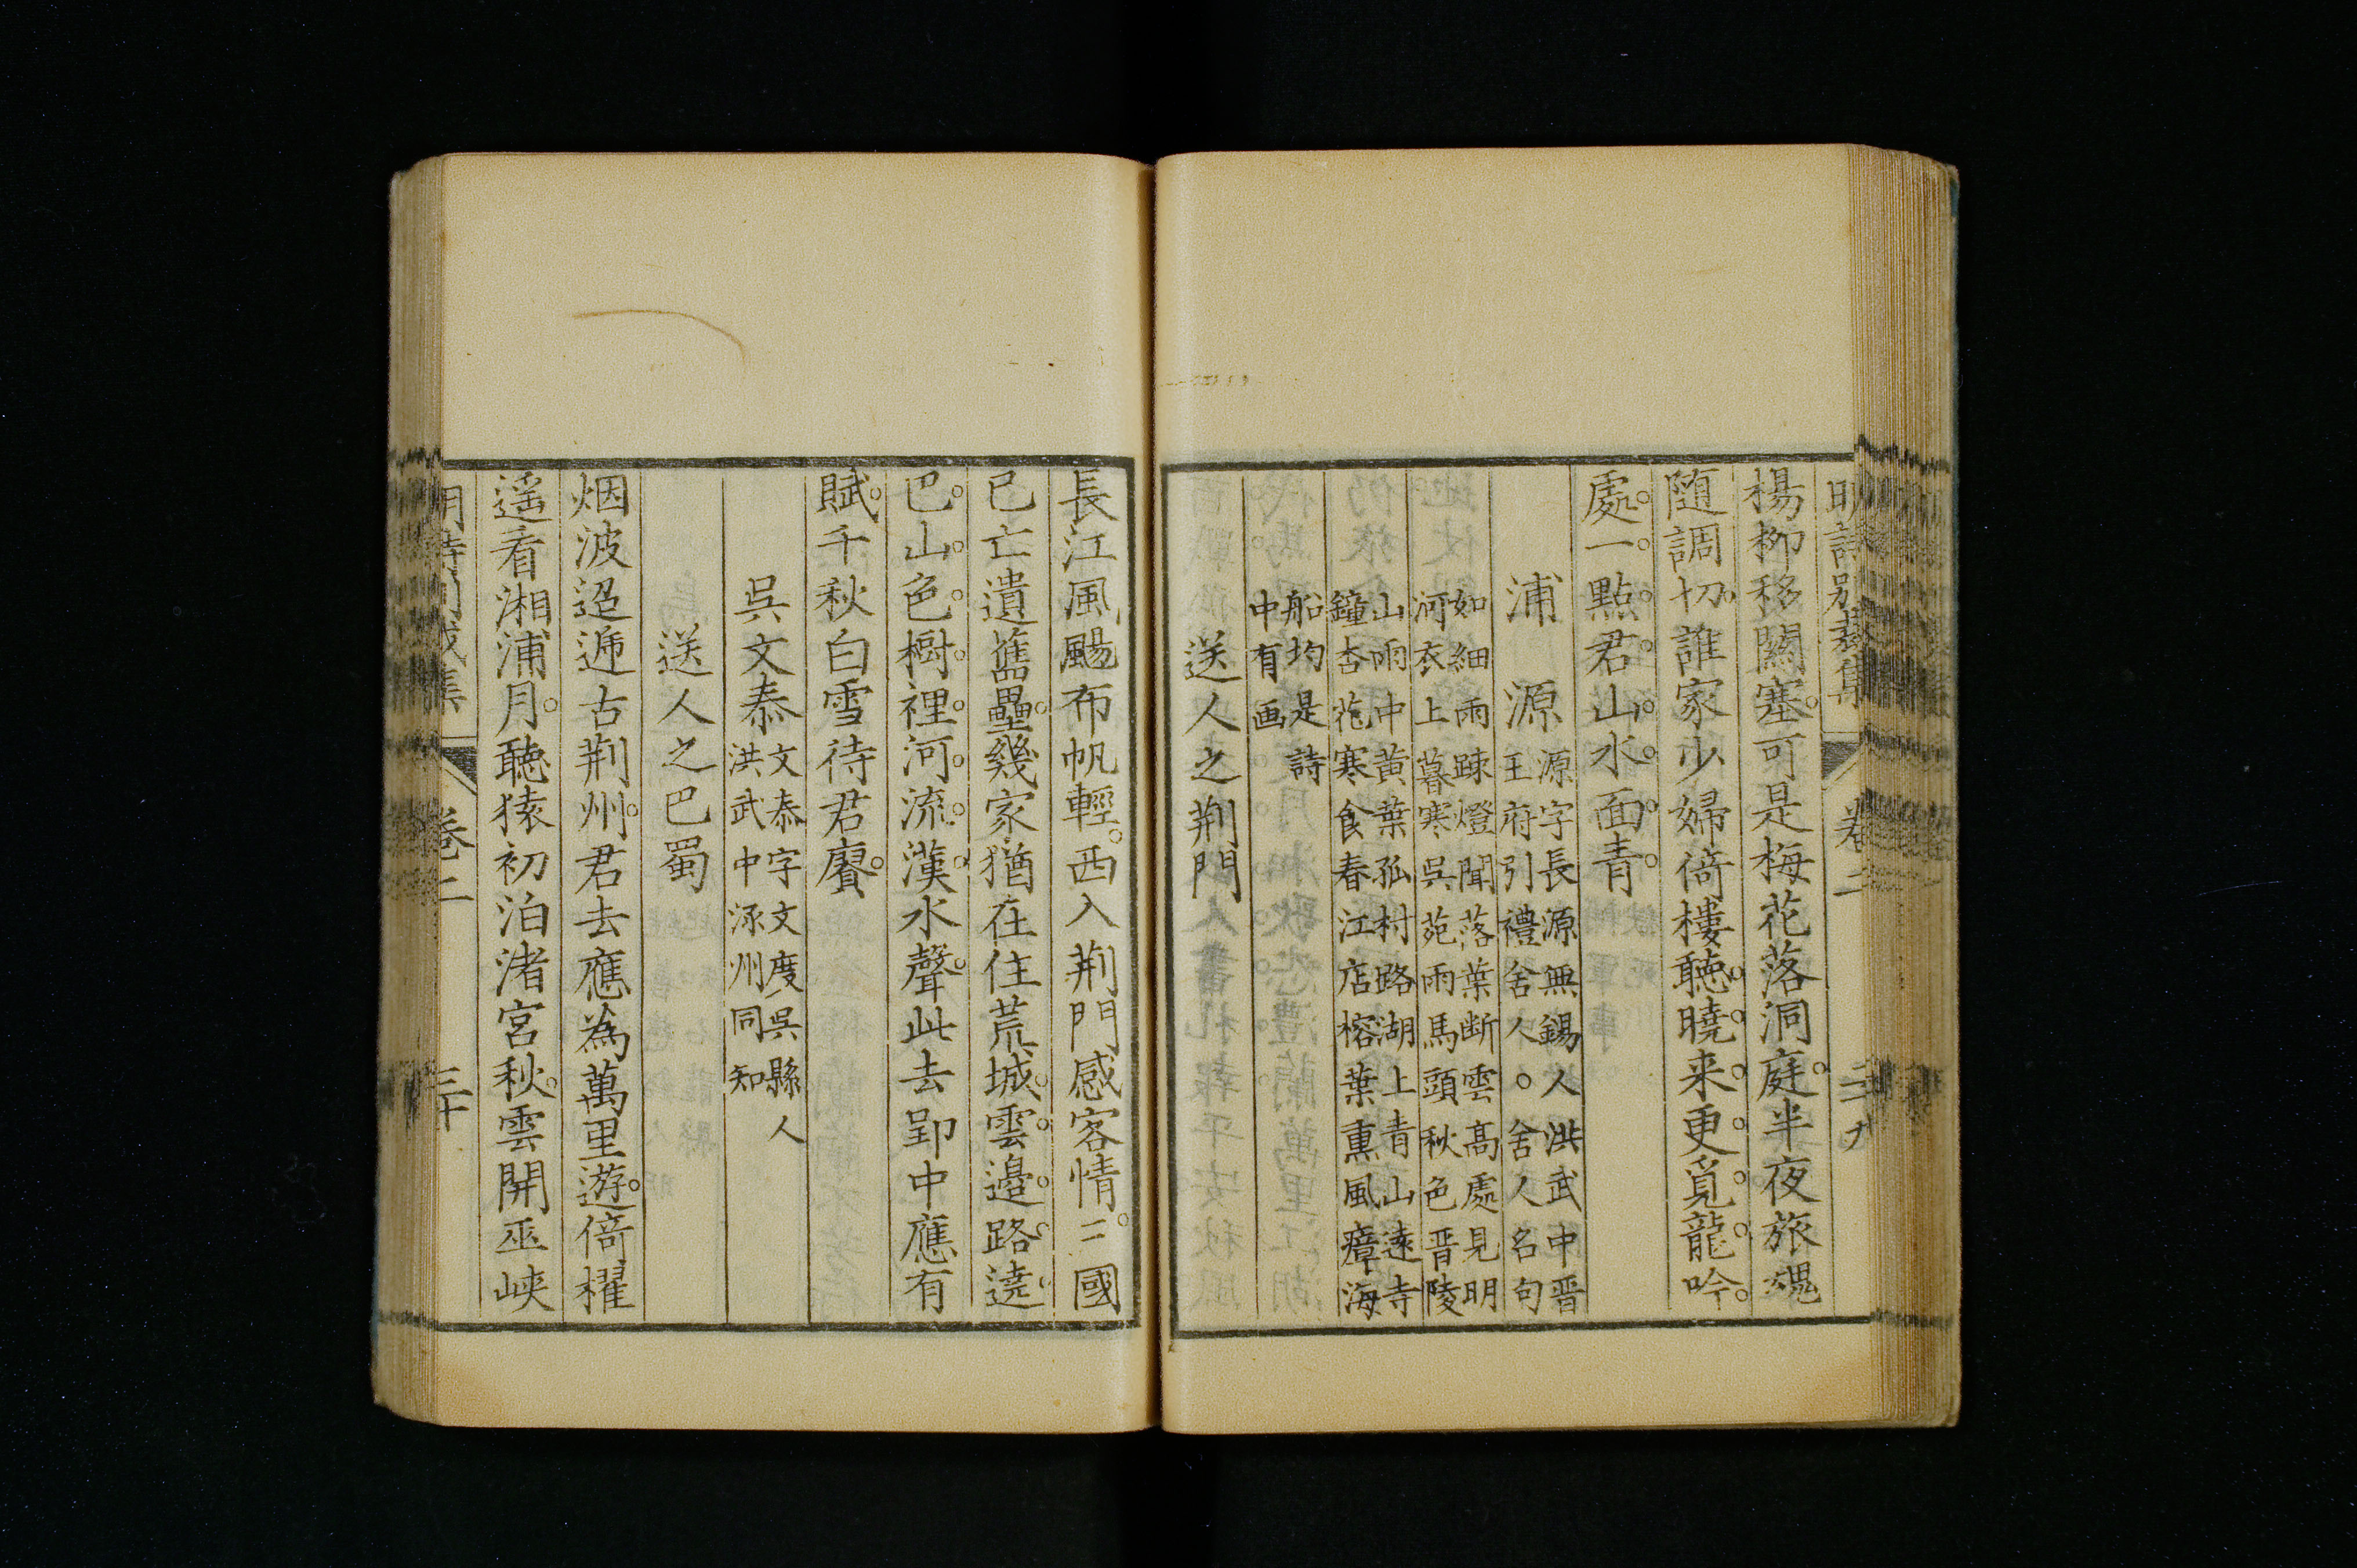 明詩別裁集 卷二
楊柳移關塞可是梅花落洞庭半夜旅魂
随調切誰家少婦倚樓聽曉来更覓龍吟
處一點君山水面青
浦源 源字長源無錫人洪武中晋
王府引禮舍人○舍人名句
如細雨踈燈聞落葉断雲髙處見明
河衣上暮寒吳苑雨馬頭秋色晋陵
山雨中黃葉孤村路湖上青山遠寺
鐘杏花寒食春江店榕葉熏風瘴海
船均是詩
中有画
送人之荆門
長江風颺布帆輕西入荆門感客情三國
已亡遺舊壘幾家猶在住荒城雲邉路遶
巴山色樹裡河流漢水聲此去郢中應有
賦千秋白雪待君賡
吳文泰 文泰字文度吳縣人
洪武中涿州同知
送人之巴蜀
烟波迢遞古荆州君去應為萬里遊倚櫂
遥看湘浦月聴猿初泊渚宮秋雲開巫峽
卷二 三十